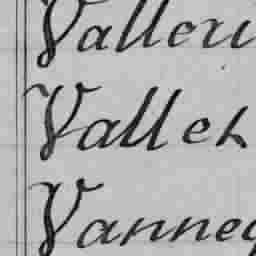 Valleri
Vallet
Vanneq